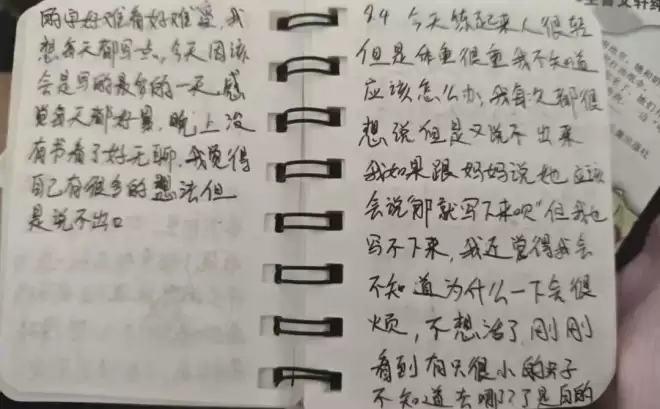 两字好难看好难受,我
想每天都写一点,今天因该
会是写的最多的一天,感
觉每天都好累,晚上没
有书看了好无聊,我觉得
自己有很多的想法但
是说不出口
9.4 今天练起来人很轻
但是体重很重我不知道
应该怎么办,我每次都很
想说但是又说不出来
我如果跟妈妈说她应该
会说"那就写下来呗"但我也
写不下来,我还觉得我会
不知道为什么一下会很
烦,不想活了,刚刚
看到有只很小的
不知道去哪了了是白的